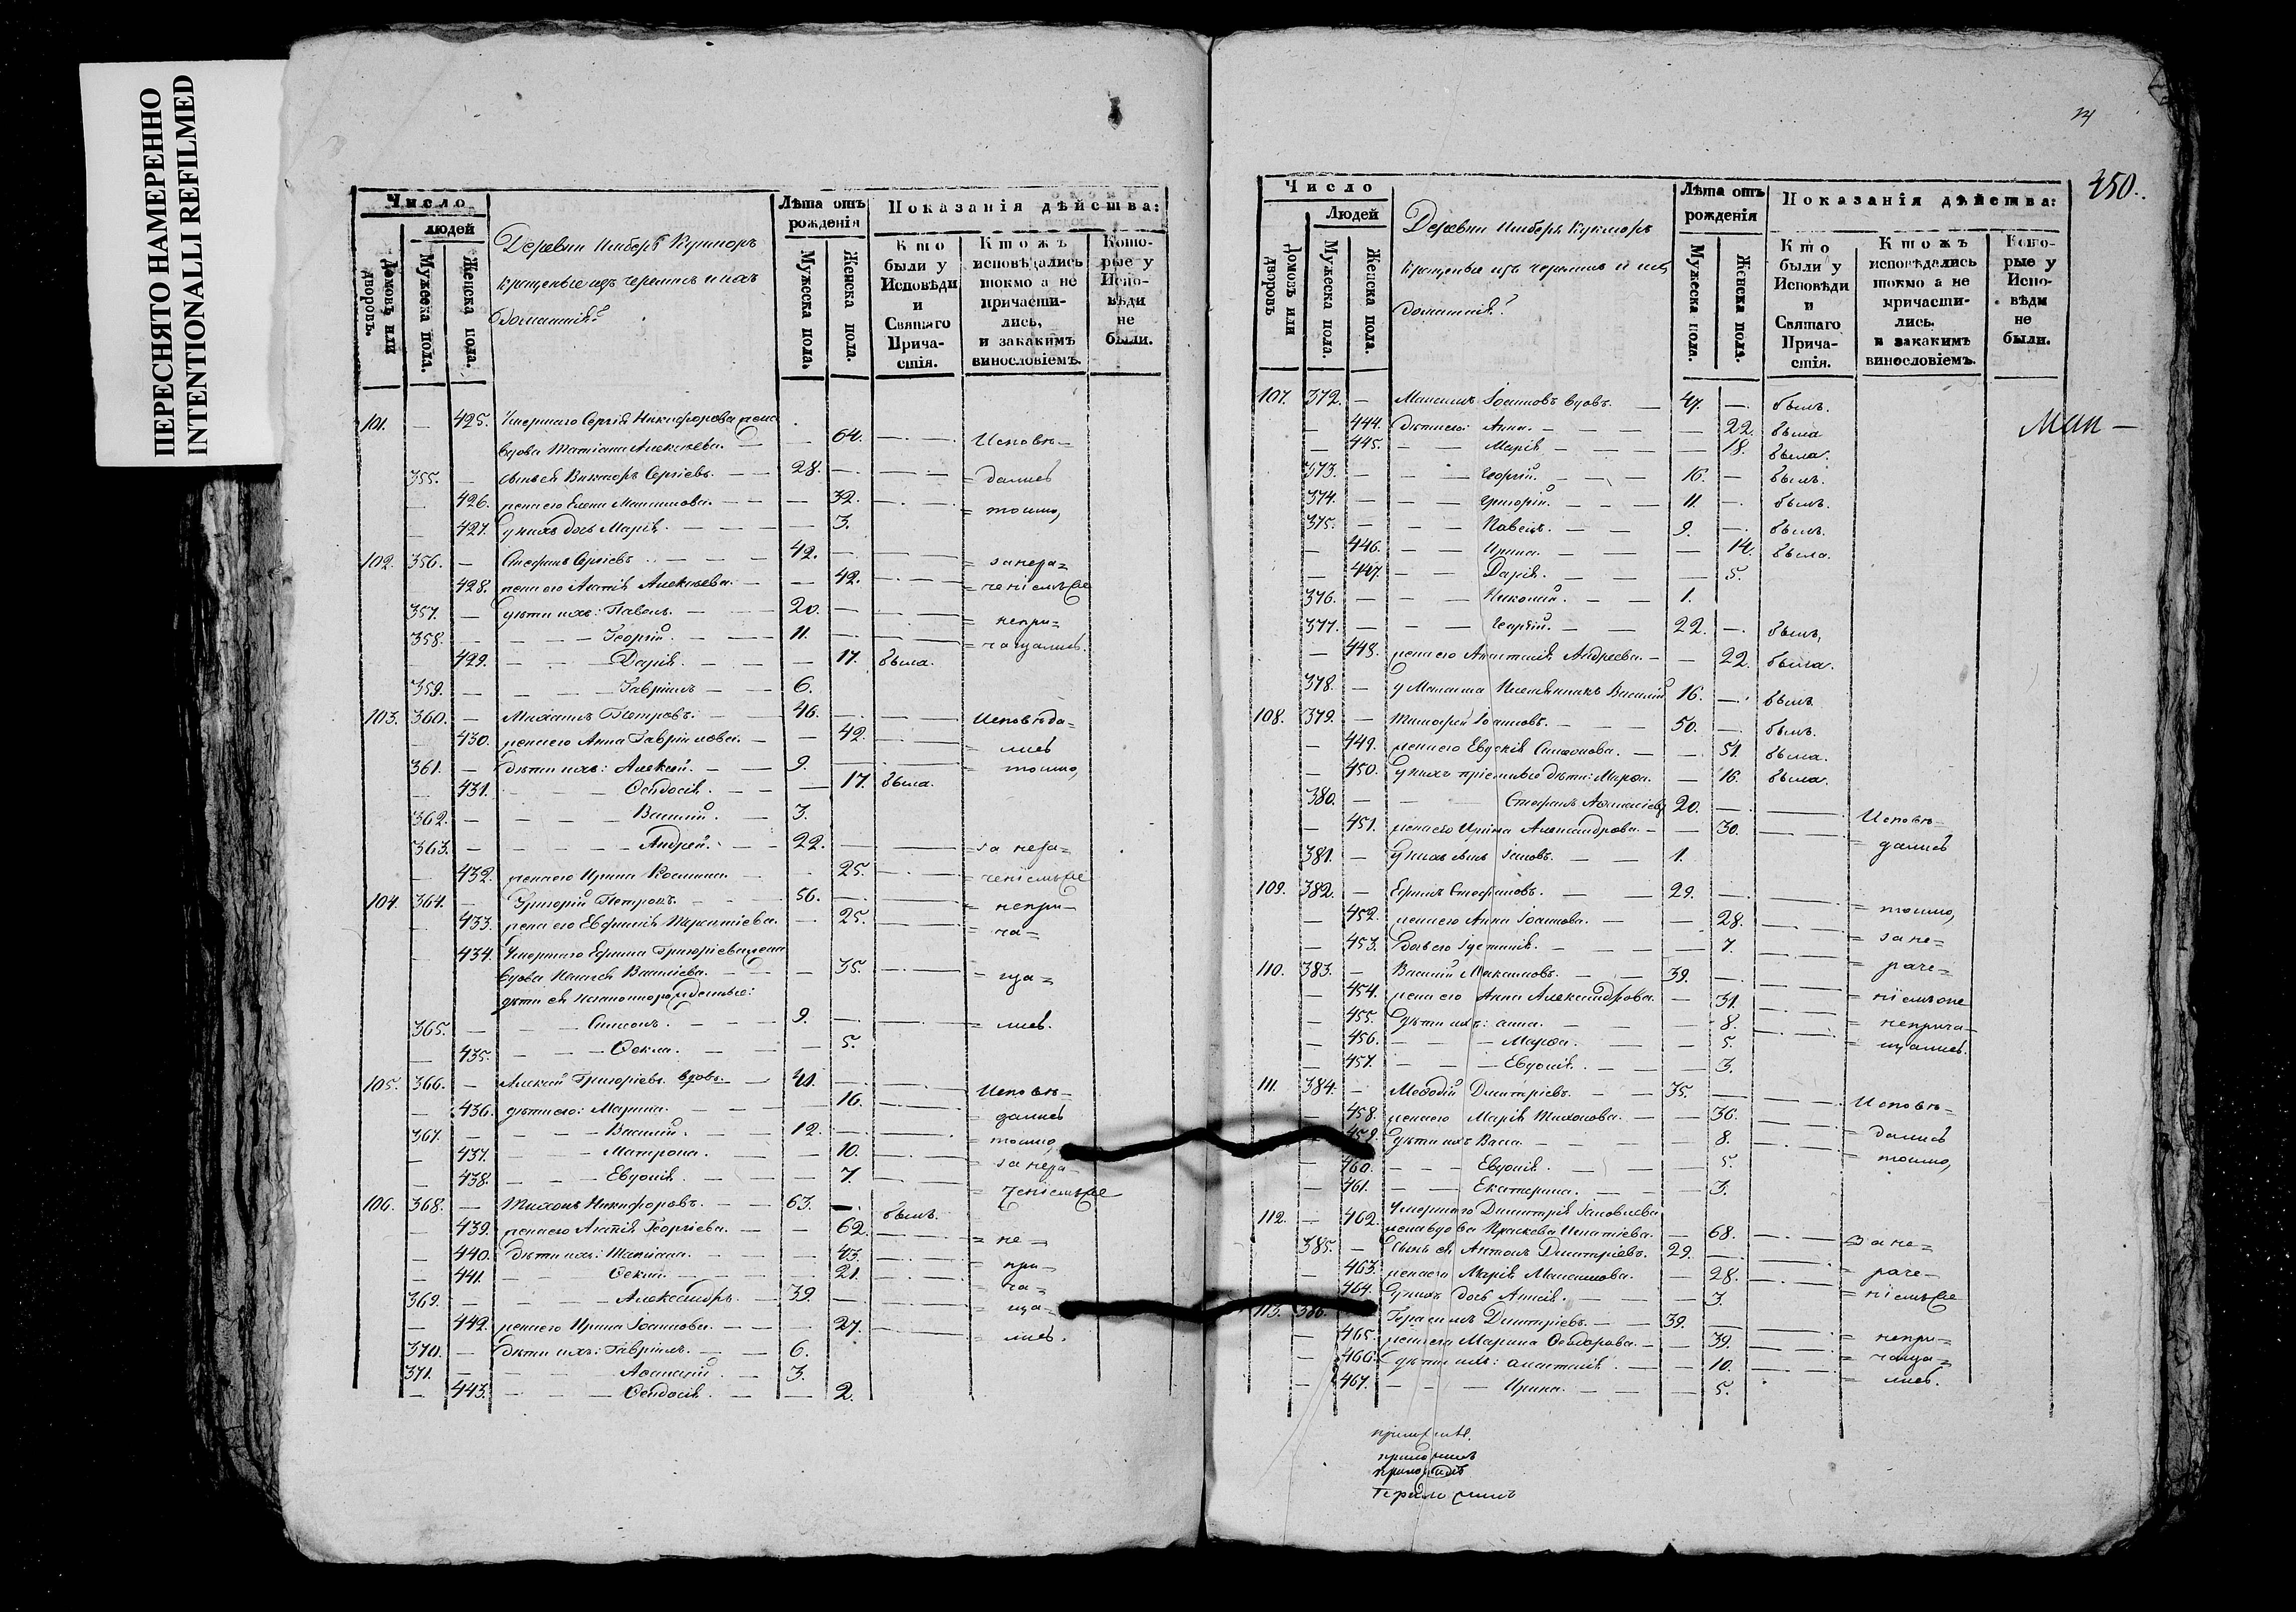 ПЕРЕСНЯТО НАМЕРЕННО
INTENTIONALLI REFILMED
Число
людей
Домовъ или дворовъ.
Мужеска пола.
Женска пола.
Деревни Кукморъ
крещеные изъ черемисъ и ихъ
домашнiе
Лѣта отъ рожденiя
Мужеска пола.
Женска пола.
Показанiя дѣйства:
Кто были у Исповѣди и Святаго Причастiя.
Ктожъ исповѣдались токмо а не причастились, и закакимъ винословiемъ.
Которые у Исповѣди не были.
101. — 425. Умершаго Сергiя Никифорова жена
вдова Татiана Алексѣева. — 64. Исповѣ-
355. — сынъ ея Викторъ Сергiевъ. 28. — = дались
— 426. жена его Елена Максимова. — 32. = токмо,
— 427. у нихъ дочь Марiя. — 3.
102. 356. — Стефанъ Сергiевъ. 42. — = занера=
— 428. жена его Агапiя Алексѣева. — 42. = ченiемъ
357. — дѣти ихъ: Павелъ. 20. — = непри=
358. — Георгiй. 11. — = чащались.
— 429. Дарiя. — 17. была.
359. — Гаврiилъ 6.
103. 360. — Михаилъ Петровъ. 46. — Исповѣда-
— 430. жена его Анна Гаврилова. — 42. = лись
361. — дѣти ихъ: Алексѣй. 9. = токмо,
— 431. Ѳеодосiя. — 17. была.
362. — Василiй. 3.
363. — Андрей. 22. — = за нера=
— 432. жена его Ирина Космина. — 25. = ченiемъ
104. 364. — Григорiй Петровъ. 56. — = непри-
— 433. жена его Евфимiя — 25. = ча=
— 434. Умершаго Ефима Григорiева жена
вдова Василiева. — 35. = ща=
дѣти ея незаконнорожденные:
365. — Симеонъ. 9. — = лись.
— 435. Ѳекла. — 5.
105. 366. — Алексѣй Григорiевъ вдовъ. 41. — Исповѣ-
— 436. дѣти его: Марина. — 16. = дались
367. — Василiй. 12. — = токмо,
— 437. Матрона. — 10. = за нера-
— 438. Евдокiя. — 7. = ченiемъ
106. 368. — Тихонъ Никифоровъ. 63. — былъ.
— 439. жена его Агапiя Георгiева. — 62. = не=
— 440. дѣти ихъ: Татiана. — 43. = при-
— 441. Ѳекла. — 21. = ча=
369. — Александръ. 39. — = ща=
— 442. жена его Ирина Iоаннова. — 27. = лись.
370. — дѣти ихъ: Гаврiилъ. 6.
371. — Аѳанасiй. 3.
— 443. Ѳеодосiя. — 2.
450.
Число
Людей
Домовъ или дворовъ
Мужеска пола.
Женска пола.
Деревни Кукморъ
крещеные изъ черемисъ и ихъ
домашнiе
Лѣта отъ рожденiя
Мужеска пола.
Женска пола.
Показанiя дѣйства:
Кто были у Исповѣди и Святаго Причастiя.
Ктожъ исповѣдались токмо а не причастились. и закакимъ винословiемъ.
Которые у Исповѣди не были.
107. 372. — Максимъ Iоанновъ вдовъ. 47. — былъ.
— 444. дѣти его: Анна. — 22. была
— 445. Марiя — 18. была.
373. — Георгiй. 16. — былъ.
374. — Григорiй. 11. — былъ.
375. — Павелъ. 9. — былъ.
— 446. Ирина. — 14. была.
— 447. Дарiя. — 5.
376. — Николай. 1.
377. — Георгiй. 22. — былъ,
— 448. жена его Анастасiя Андреева. — 22. была.
378. — у Максима племянникъ Василiй 16. — былъ
108. 379. — Тимофей Iоанновъ. 50. — былъ.
— 449. жена его Евдокiя Симеонова. — 51. была.
— 450. у нихъ прiемные дѣти: Марѳа. — 16. была.
380. — Стефанъ Аѳанасiевъ 20. — Исповѣ-
— 451. жена его Ирина Александрова. — 30. = дались
381. — у нихъ сынъ Iаковъ. 1.
109. 382. — Ефимъ Стефановъ. 29. —
— 452. жена его Анна Iоаннова. — 28. = токмо,
— 453. дочь его Iустинiя. — 7. = за не=
110. 383. — Василiй Максимовъ. 39. — = раче=
— 454. жена его Анна Александрова. — 31. = нiемъ оне
— 455. дѣти ихъ: анна. — 8. = неприча-
— 456. Марѳа. — 5. = щались.
— 457. Евдокiя. — 3.
111. 384. — Меѳодiй Дмитрiевъ. 35. — Исповѣ-
— 458. жена его Марiя Тихонова. — 36. = дались
— 459. дѣти ихъ Васса. — 8. = токмо,
— 460. Евдокiя. — 5.
— 461. Екатерина. — 3.
112. — 462. Умершаго Димитрiя Iаковлева
жена вдова Параскева Игнатiева. — 68. = За не=
385. — Сынъ ея Антонъ Дмитрiевъ. 29. — = раче-
— 463. жена его Марiя Максимова. — 28. = нiемъ
— 464. у нихъ дочь Анисiя. — 3.
113. 386. Герасимъ Дмитрiевъ. 39. —
— 465. жена его Марина Ѳеодорова. — 39. = непри=
— 466. дѣти ихъ: анастасiя. — 10. = чаща=
— 467. Ирина. — 5. = лись.